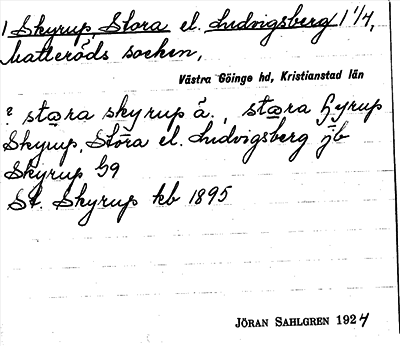 1 Skyrup, Stora el. Ludvigsberg 1 1/4,
Matteröds socken,
Västra Göinge hd, Kristianstad län
? stora skyrup ä., stora hyrup
Skyrup, Stora el. Ludvigsberg jb
Skyrup 59
St. Skyrup kb 1895
JÖRAN SAHLGREN 1924